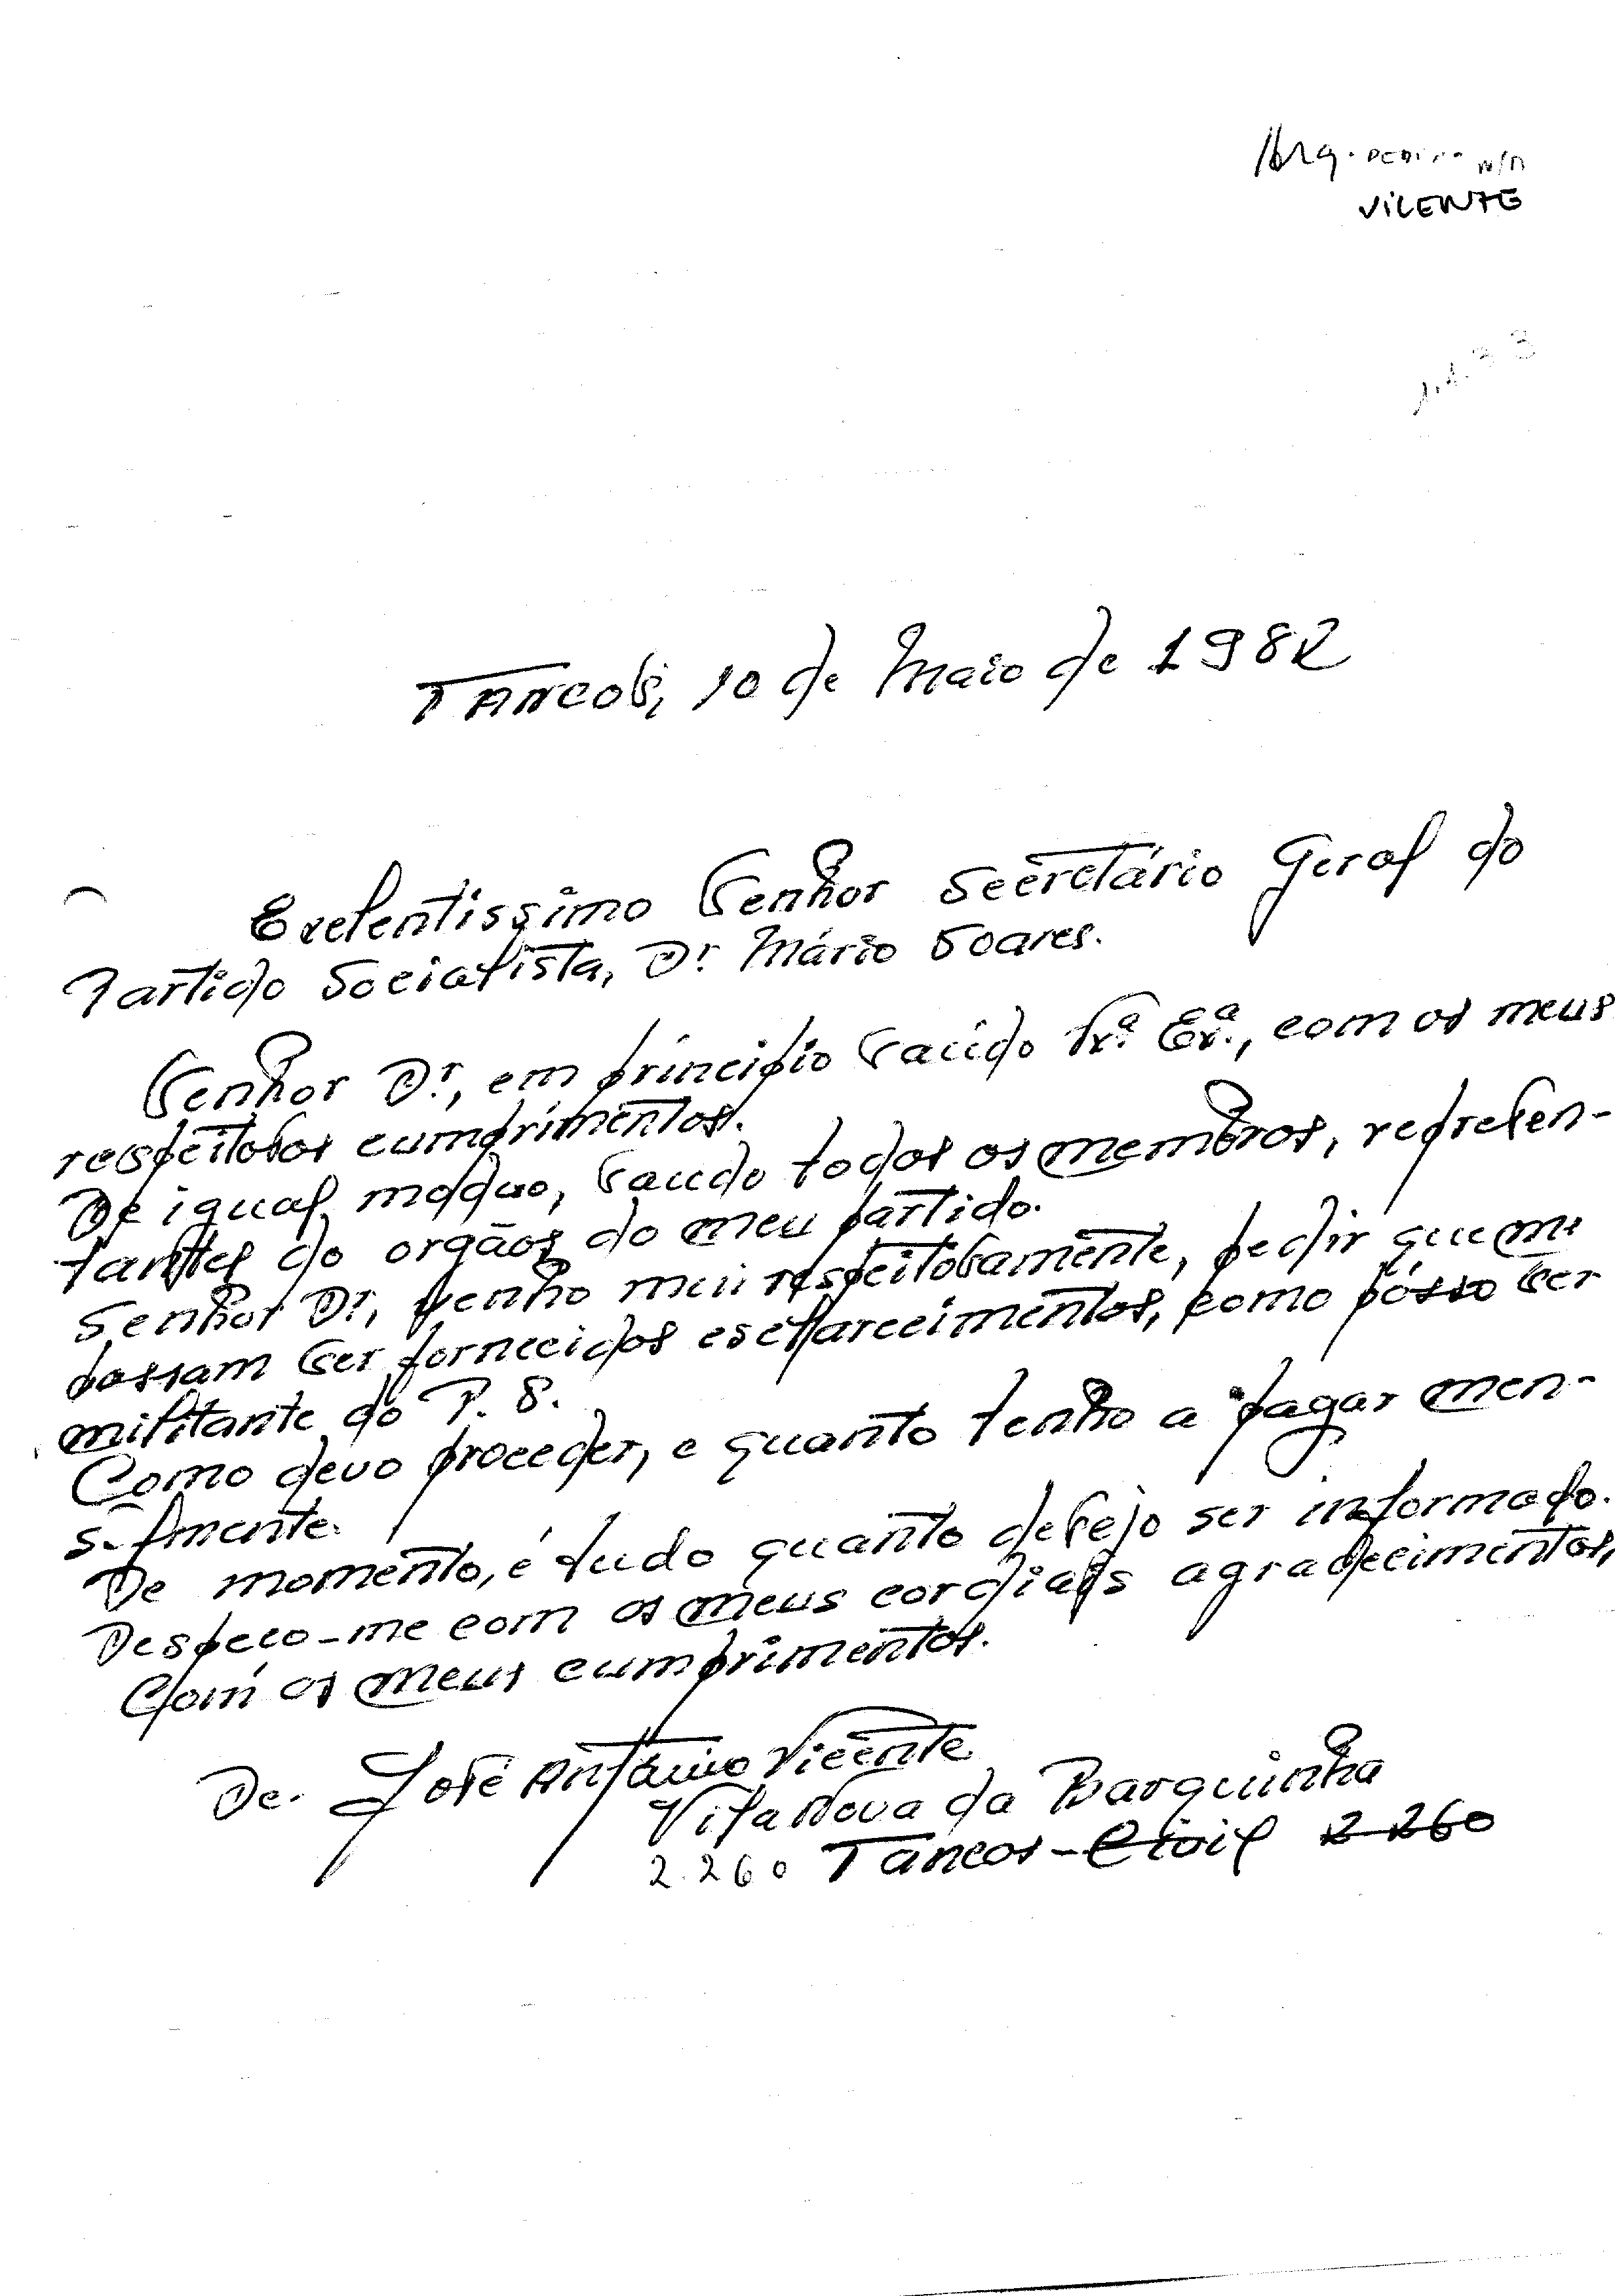 Arq. n/n
VICENTE
Tancos, 10 de Maio de 1982
Exelentissimo Senhor Secretário Geral do
Partido Socialista, Dr. Mário Soares.
Senhor Dr., em principio saúdo Vª. Exª., com os meus
respeitosos cumprimentos.
De igual modo, saudo todos os membros, represen-
tantes do orgãos do meu partido.
Senhor Dr., venho mui respeitosamente, pedir que me
possam ser fornecidos esclarecimentos, como pósso ser
militante do P. S.
Como devo proceder, e quanto tenho a pagar men-
salmente.
De momento, é tudo quanto desejo ser informado.
Despeco-me com os meus cordiais agradecimentos,
Com os meus cumprimentos.
De. José António Vicente
Vila Nova da Barquinha
2.260 Tancos-Civil 2 260